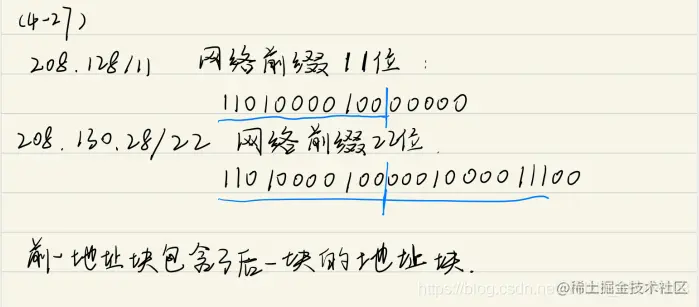 (4-27)
208.128/11 网络前缀11位:
1101000010000000
208.130.28/22 网络前缀22位.
110100001000001000011100
前一地址块包含了后一块的地址块.
https://blog.csdn.net
@稀土掘金技术社区